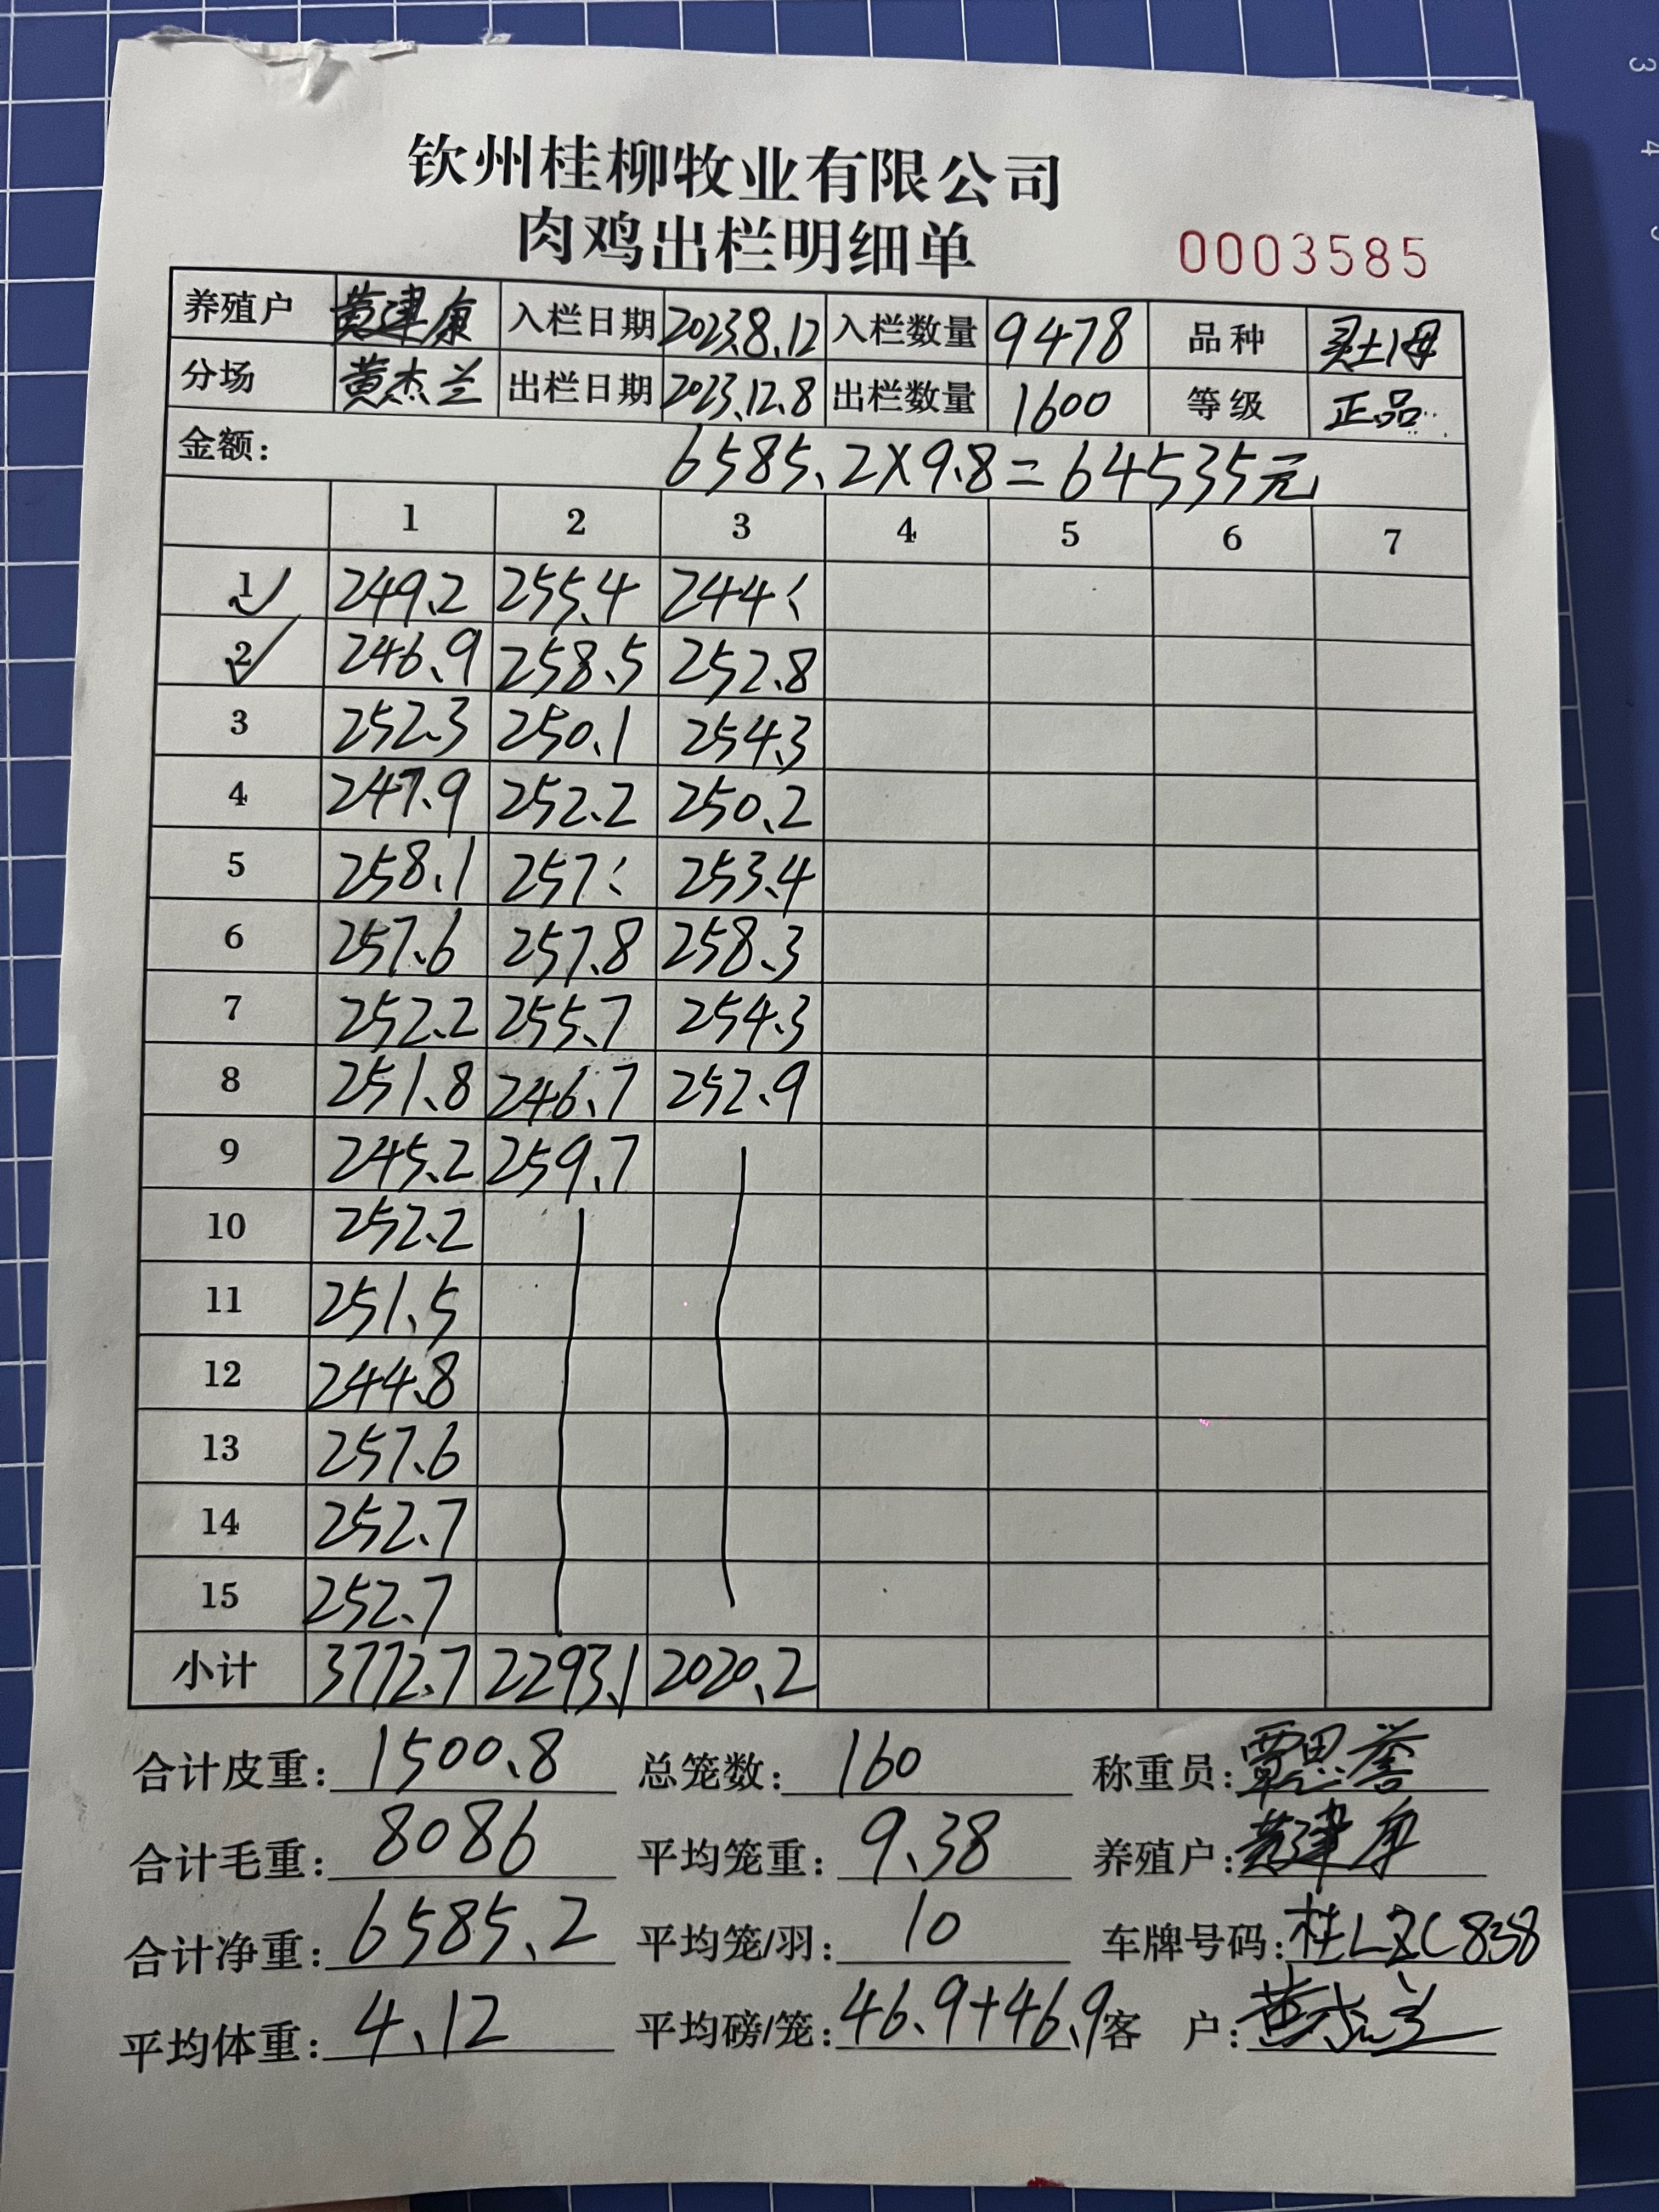 钦州桂柳牧业有限公司
肉鸡出栏明细单 0003585
养殖户 黄建康 入栏日期 2023.8.12 入栏数量 9478 品种 灵土母
分场 黄杰兰 出栏日期 2023.12.8 出栏数量 1600 等级 正品
金额: 6585.2×9.8=64535元
1 2 3 4 5 6 7
1 249.2 255.4 244
2 246.9 258.5 252.8
3 252.3 250.1 254.3
4 247.9 252.2 250.2
5 258.1 257 253.4
6 257.6 257.8 258.3
7 252.2 255.7 254.3
8 251.8 246.7 252.9
9 245.2 259.7
10 252.2
11 251.5
12 244.8
13 257.6
14 252.7
15 252.7
小计 3772.7 2293.1 2020.2
合计皮重: 1500.8 总笼数: 160 称重员: 覃思誉
合计毛重: 8086 平均笼重: 9.38 养殖户: 黄建康
合计净重: 6585.2 平均笼/羽: 10 车牌号码: 桂LZC838
平均体重: 4.12 平均磅/笼: 46.9+46.9 客 户: 黄杰兰
3
4